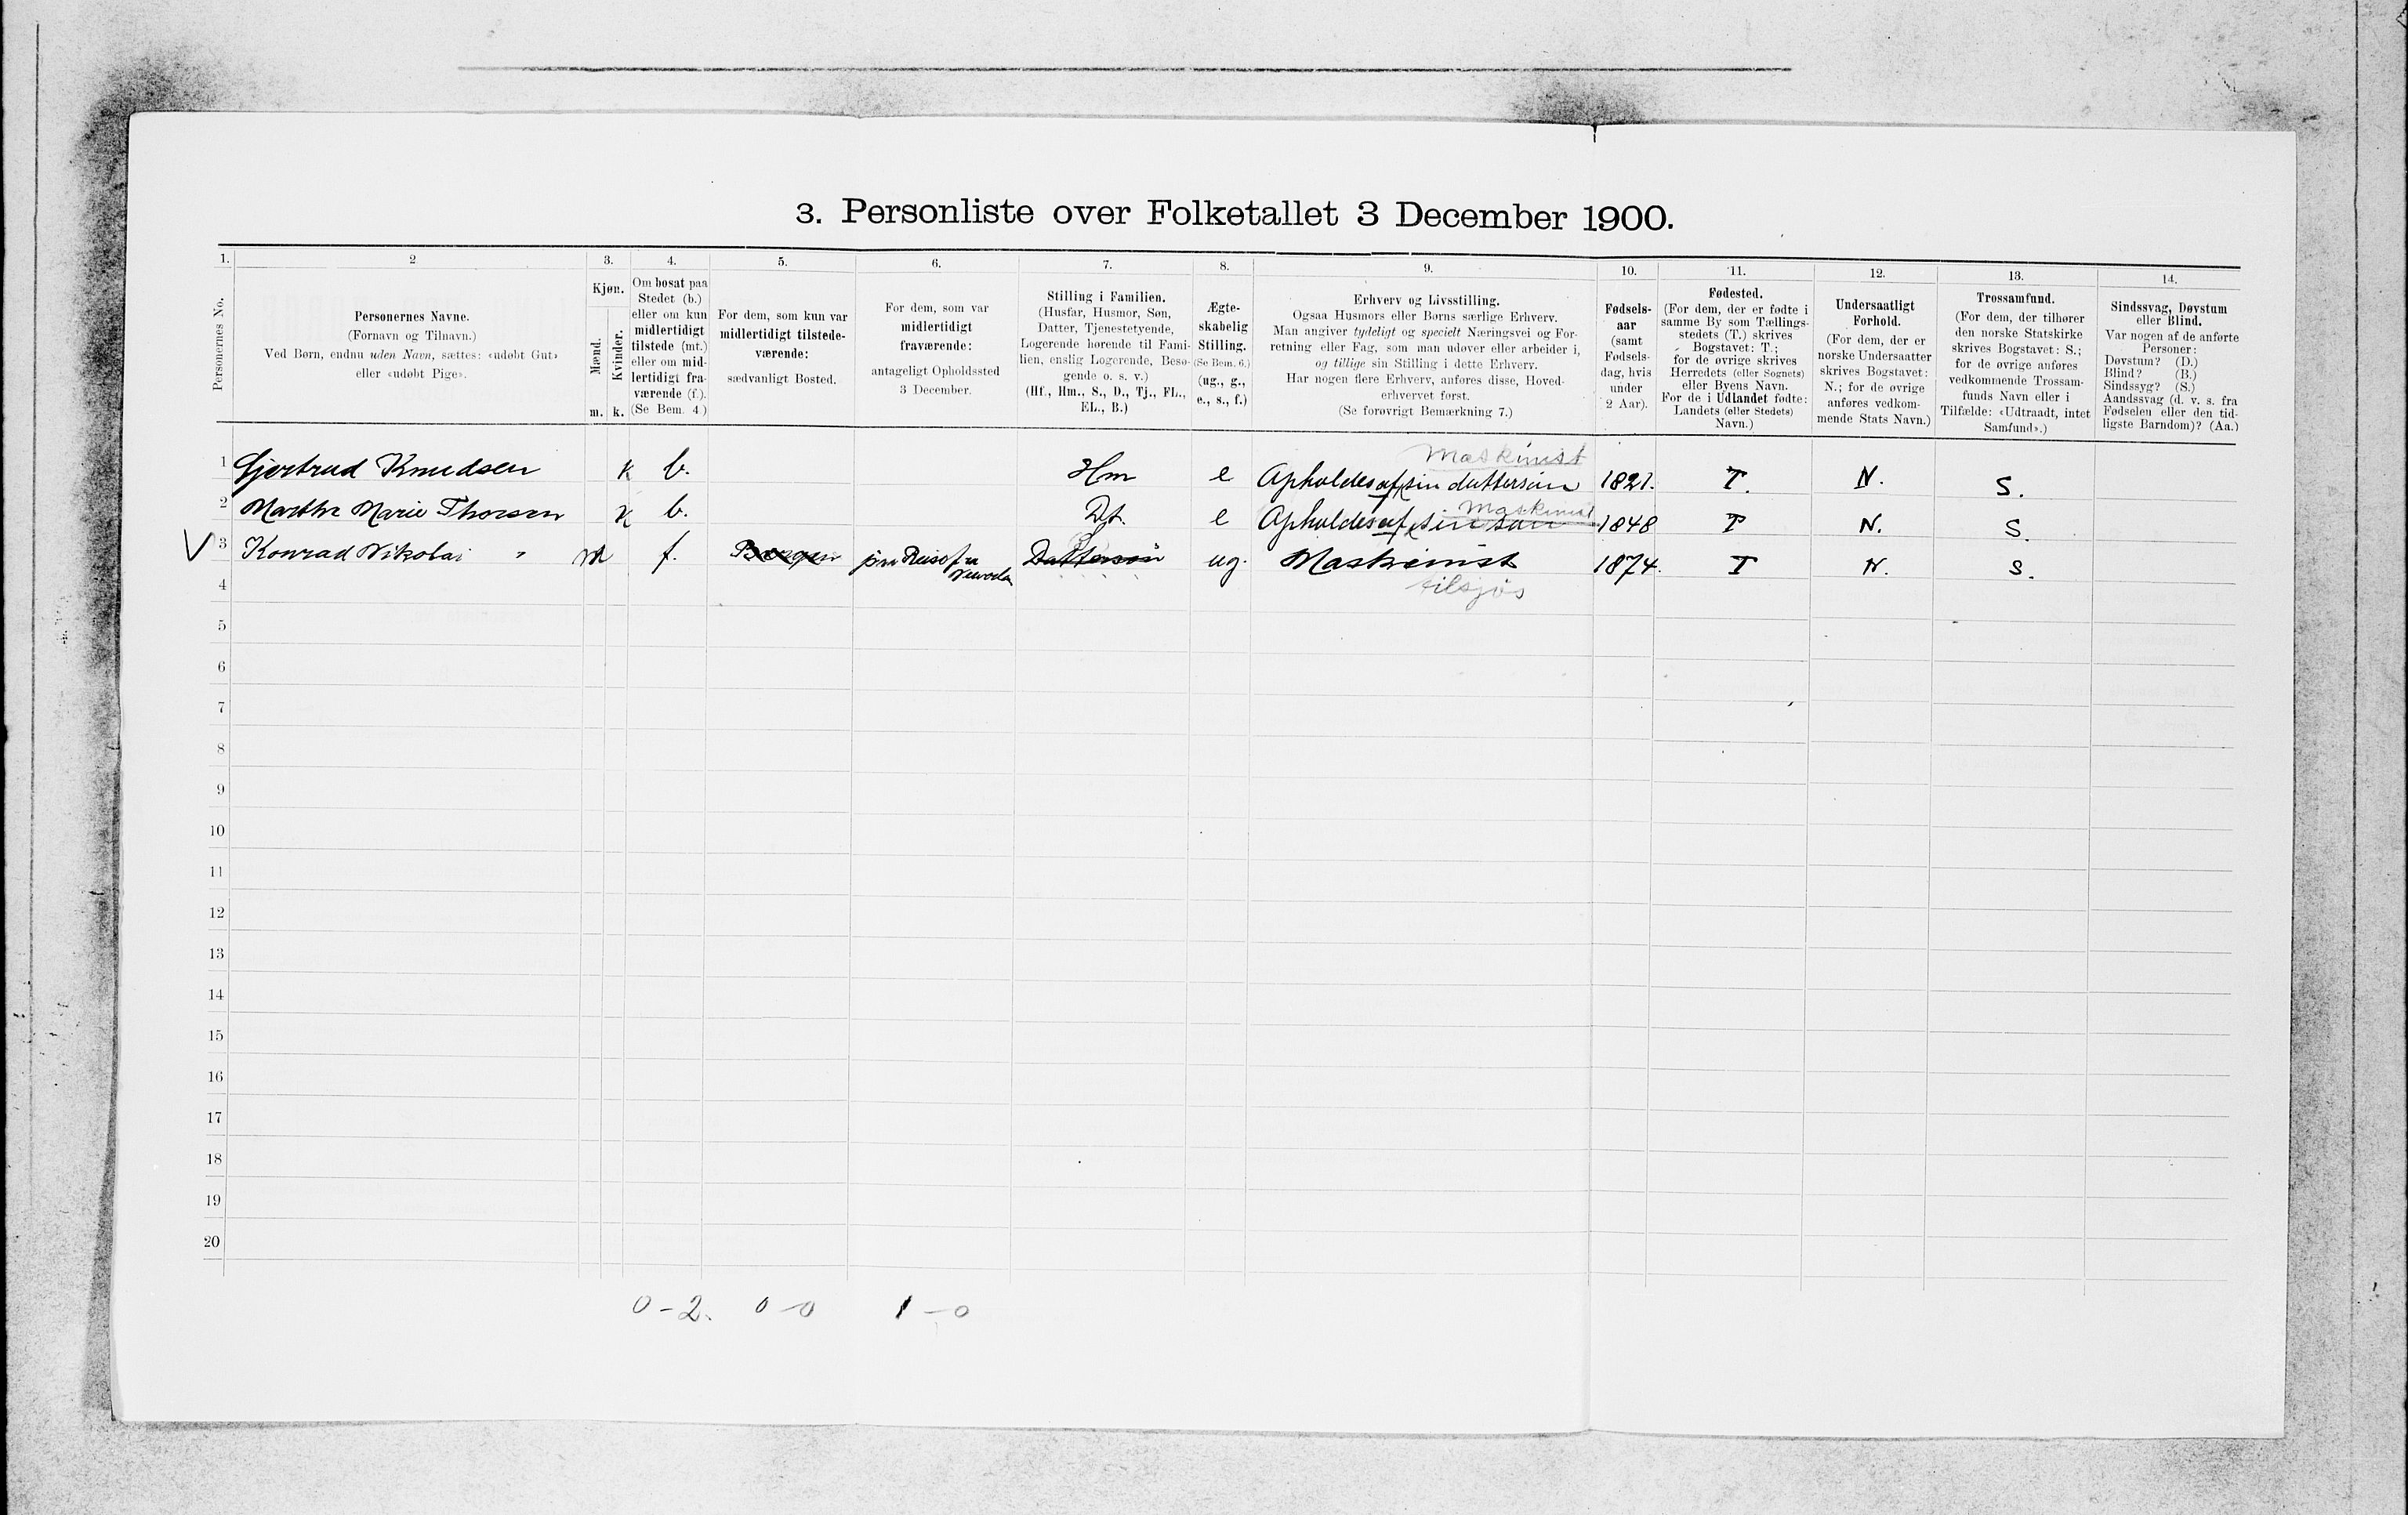 3. Personliste over Folketallet 3 December 1900.
1. 2 3. 4. 5. 6. 7. 8. 9. 10. 11. 12. 13. 14.
Personernes No.
Personernes Navne.
(Fornavn og Tilnavn.)
Ved Børn, endnu uden Navn, sættes: «udøbt Gut»
eller «udøbt Pige».
Kjøn.
Mænd.
Kvinder.
m. k.
Om bosat paa
Stedet (b.)
eller om kun
midlertidigt
tilstede (mt.)
eller om mid-
lertidigt fra-
værende (f.).
(Se Bem. 4.)
For dem, som kun var
midlertidigt tilstede-
værende:
sædvanligt Bosted.
For dem, som var
midlertidigt
fraværende:
antageligt Opholdssted
3 December.
Stilling i Familien.
(Husfar, Husmor, Søn,
Datter, Tjenestetyende,
Logerende hørende til Fami-
lien, enslig Logerende, Besø-
gende o. s. v.)
(Hf., Hm., S., D., Tj., FL.,
EL., B.)
Ægte-
skabelig
Stilling.
(Se Bem. 6.)
(ug., g.,
e., s., f.)
Erhverv og Livsstilling.
Ogsaa Husmors eller Børns særlige Erhverv.
Man angiver tydeligt og specielt Næringsvei og For-
retning eller Fag, som man udøver eller arbeider i,
og tillige sin Stilling i dette Erhverv.
Har nogen flere Erhverv, anføres disse, Hoved-
erhvervet først.
(Se forøvrigt Bemærkning 7.)
Fødsels-
aar
(samt
Fødsels-
dag, hvis
under
2 Aar).
Fødested.
(For dem, der er fødte i
samme By som Tællings-
stedets (T.) skrives
Bogstavet: T.;
for de øvrige skrives
Herredets (eller Sognets)
eller Byens Navn.
For de i Udlandet fødte:
Landets (eller Stedets)
Navn.)
Undersaatligt
Forhold.
(For dem, der er
norske Undersaatter
skrives Bogstavet:
N.; for de øvrige
anføres vedkom-
mende Stats Navn.)
Trossamfund.
(For dem, der tilhører
den norske Statskirke
skrives Bogstavet: S.;
for de øvrige anføres
vedkommende Trossam-
funds Navn eller i
Tilfælde: «Udtraadt, intet
Samfund».)
Sindssvag, Døvstum
eller Blind.
Var nogen af de anførte
Personer:
Døvstum? (D.)
Blind? (B.)
Sindssyg? (S.)
Aandssvag (d. v. s. fra
Fødselen eller den tid-
ligste Barndom)? (Aa.)
Maskinist
1 Gjertrud Knudsen k b. Hm e Opholdes af sin dattersøn 1821. T. N. S.
Maskinist
2 Marthe Marie Thorsen k b. Dt. e Opholdes af sin søn 1848 T N. S.
V 3 Konrad Nikolai " m f. Bergen paa Reise fra Dattersøn ug. Maskinist 1874. T N. S.
tilsjøs
4
5
6
7
8
9
10
11
12
13
14
15
16
17
18
19
20
0-2. 0-0 1-0